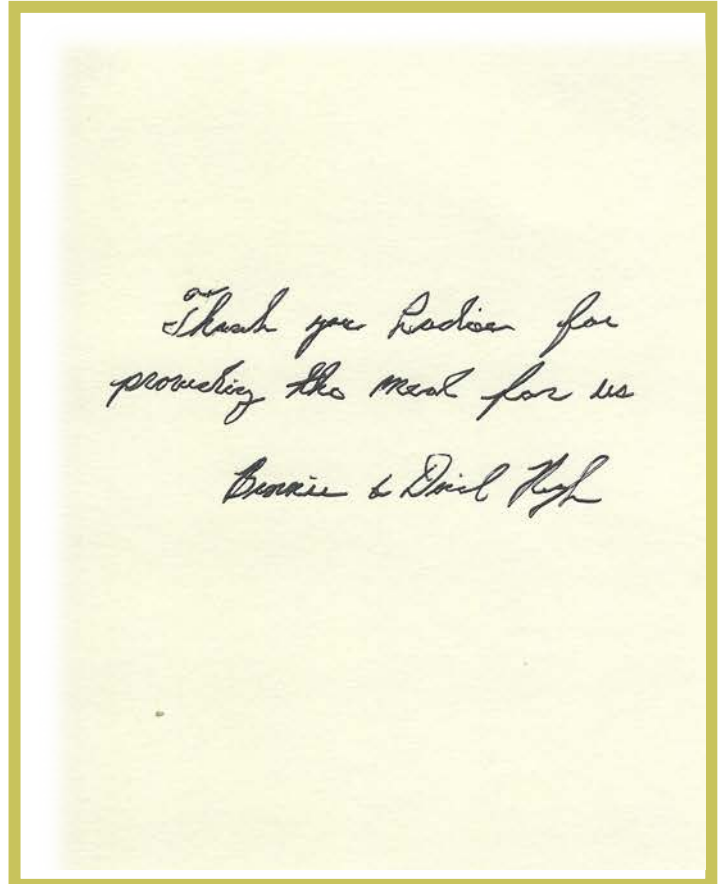 Thank you Ladies for
providing the meal for us
Bonnie &